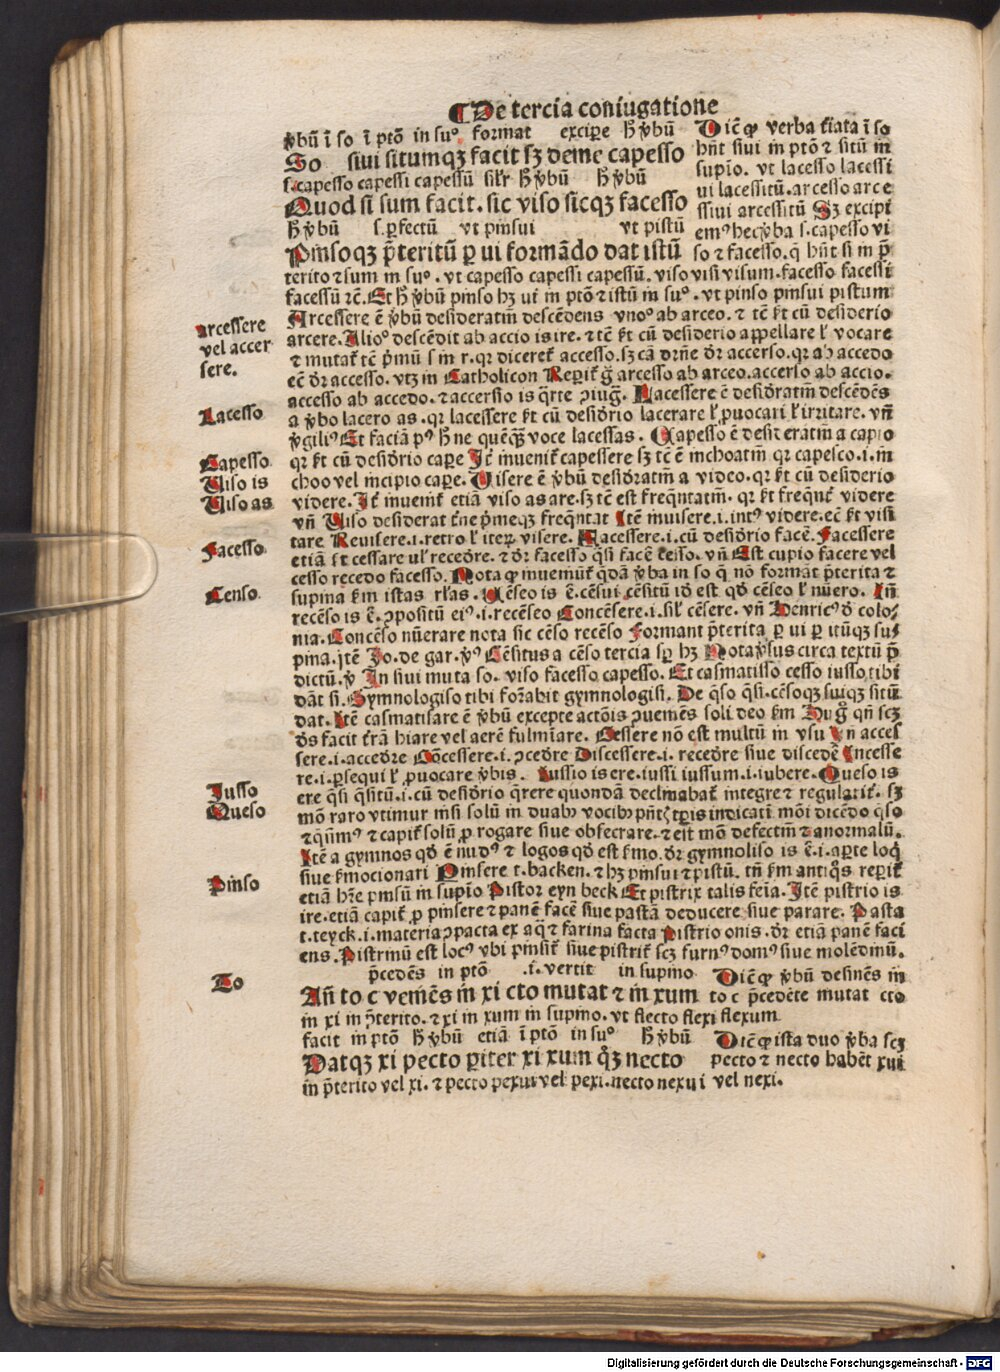 De tercia coniugatione
v̄bū ī so ī ptō in suº format excipe h̄ v̄bū
So siui situmqꝫ facit sꝫ deme capesso
s. capesso capessi capessū silr h̄ v̄bū h̄ v̄bū
Quod si sum facit. sic viso sicqꝫ facesso
h̄ v̄bū s. ꝑfectū vt pinsui vt pistū
Pinsoqꝫ p̄teritū ꝑ ui formādo dat istū
Dicē qꝙ verba t̄iata ī so
hn̄t siui in ptō ⁊ sitū in
supīo. vt lacesso lacessi
ui lacessitū. arcesso arce
ssiui arcessitū Sꝫ excipi
emꝰ hec v̄ba s. capesso vi
so ⁊ facesso. q̄ hn̄t si in p̄
terito ⁊ sum in suº. vt capesso capessi capessū. viso visi visum. facesso facessi
facessū ⁊c̄. Et h̄ v̄bū pinso hꝫ ui in ptō ⁊ istū in suº. vt pinso pinsui pistum
Arcessere ē v̄bū desideratiū descēdens vnoº ab arceo. ⁊ tē s̄t cū desiderio
arcere. Alioº descēdit ab accio is ire. ⁊ tē s̄t cū desiderio appellare l̄ vocare
⁊ mutat̄ tē p̄mū s in r. qr diceret̄ accesso. sꝫ cā dr̄ne dr̄ accerso. qr ab accedo
ecē dr̄ accesso. vtꝫ in Catholicon Reꝑit̄ ḡ arcesso ab arceo. accerso ab accio.
accesso ab accedo. ⁊ accersio is q̄rte ꝯiuḡ. Lacessere ē desid̄ratiū descēdēs
a v̄bo lacero as. qr lacessere s̄t cū desid̄rio lacerare l̄ ꝓuocari l̄ irritare. vn̄
v̄giliꝰ Et faciā pꝰ h̄ ne quēq̄ꝫ voce lacessas. Capesso ē desideratiū a capio
qr s̄t cū desid̄rio caꝑe Itē inuenit̄ capessere sꝫ tē ē inchoatiū qr capesco. i. in
choo vel incipio caꝑe. Visere ē v̄bū desid̄ratiū a video. qr s̄t cū desiderio
videre. Itē inuenit̄ etiā viso as are. sꝫ tē est freq̄ntatiū. qr s̄t freq̄nt̄ videre
vn̄ Viso desiderat t̄ne p̄meqꝫ freq̄ntat Itē inuisere. i. intꝰ videre. ec̄ s̄t visi
tare Reuisere. i. retro l̄ iteꝝ visere. Facessere. i. cū desid̄rio facē. Facessere
etiā s̄t cessare vl̄ recedre. ⁊ dr̄ facesso q̄si facē cesso. vn̄ Est cupio facere vel
cesso recedo facesso. Nota qꝙ inueniūt̄ q̄dā v̄ba in so q̄ nō formāt p̄terita ⁊
supina s̄m istas rl̄as. Cēseo is ē. cēsui cēsitū id est qd̄ cēseo l̄ nūero. In̄
recēso is ē. ꝯpositū eiꝰ. i. recēseo Concēsere. i. sil̄ cēsere. vn̄ Henricꝰ d̄ colo
nia. Concēso nūerare nota sic cēso recēso Formant p̄terita ꝑ ui ꝑ itūqꝫ su
pina. itē Jo. de gar. v̄ꝰ Cēsitus a cēso tercia sꝑ hꝫ Nota v̄sus circa textū p̄
dictū. v̄ In siui muta so. viso facesso capesso. Et casmatisso cesso iusso tibi
dāt si. Gymnologiso tibi for̄abit gymnologisi. De q̄so q̄si. cēsoqꝫ suiqꝫ sitū
dat. Itē casmatisare ē v̄bū excepte actōis ꝯueniēs soli deo s̄m Hug̊ qn̄ scꝫ
ds̄ facit t̄rā hiare vel aerē fulminare. Cessere nō est multū in vsu In̄ acces
sere. i. accedr̄e Concessere. i. ꝯcedr̄e Discessere. i. recedr̄e siue discedē Incesse
re. i. ꝑsequi l̄ ꝓuocare v̄bis. Iussio is ere. iussi iussum. i. iubere. Queso is
ere q̄si q̄sitū. i. cū desid̄rio q̄rere quondā declinabat̄ integre ⁊ regularit̄. sꝫ
mō raro vtimur nisi solū in duabꝰ vocibꝰ pn̄tꝭ tꝑis indicati mōi dicēdo q̄so
⁊ q̄sumꝰ ⁊ capit̄ solū ꝓ rogare siue obsecrare. ⁊ est mō defectiū ⁊ anormalū.
Itē a gymnos qd̄ ē nudꝰ ⁊ logos qd̄ est s̄mo. dr̄ gymnoliso is ē. i. aꝑte loq̄
siue s̄mocionari Pinsere t. backen. ⁊ hꝫ pinsui ⁊ pistū. tn̄ s̄m antiq̄s reꝑit̄
etiā hr̄e pinsū in supīo Pistor eyn beck Et pistrix talis fēia. Itē pistrio is
ire. etiā capit̄ ꝓ pinsere ⁊ panē facē siue pastā deducere siue parare. Pasta
t. teyck. i. materia ꝯpacta ex aq̄ ⁊ farina facta Pistrio onis. dr̄ etiā panē faci
ens. Pistrinū est locꝰ vbi pinsit̄ siue pistrit̄ scꝫ furnꝰ domꝰ siue molēdinū.
p̄cedēs in ptō .i. vertit in supino
An̄ to c veniēs in xi cto mutat ⁊ in xum
Dicē qꝙ v̄bū desinēs in
to c p̄cedēte mutat cto
in xi in p̄terito. ⁊ xi in xum in supino. vt flecto flexi flexum.
facit in ptō h̄ v̄bū etiā ī ptō in suº h̄ v̄bū
Datqꝫ xi pecto ꝑiter xi xum q̊qꝫ necto
Dicē qꝙ ista duo v̄ba scꝫ
pecto ⁊ necto habēt xui
in p̄terito vel xi. ⁊ pecto pexui vel pexi. necto nexui vel nexi.
Arcessere
vel accer
sere.
Lacesso
Capesso
Viso is
Viso as
Facesso
Censo
Iusso
Queso
Pinso
To
Digitalisierung gefördert durch die Deutsche Forschungsgemeinschaft - DFG